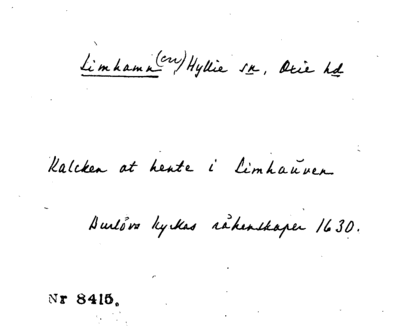 Limhamn (en) Hyllie sn, Oxie hd
Kalcken at hente i Limhaŭen
Burlövs kyrkas räkenskaper 1630.
Nr 8415.